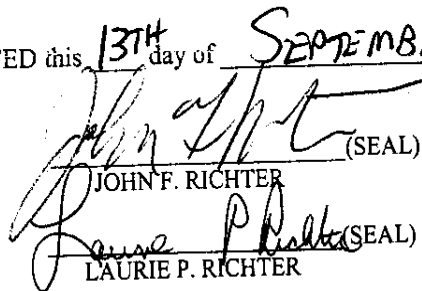 ED this 13TH day of SEPTEMB
John F Richter (SEAL)
JOHN F. RICHTER
Laurie P Richter (SEAL)
LAURIE P. RICHTER